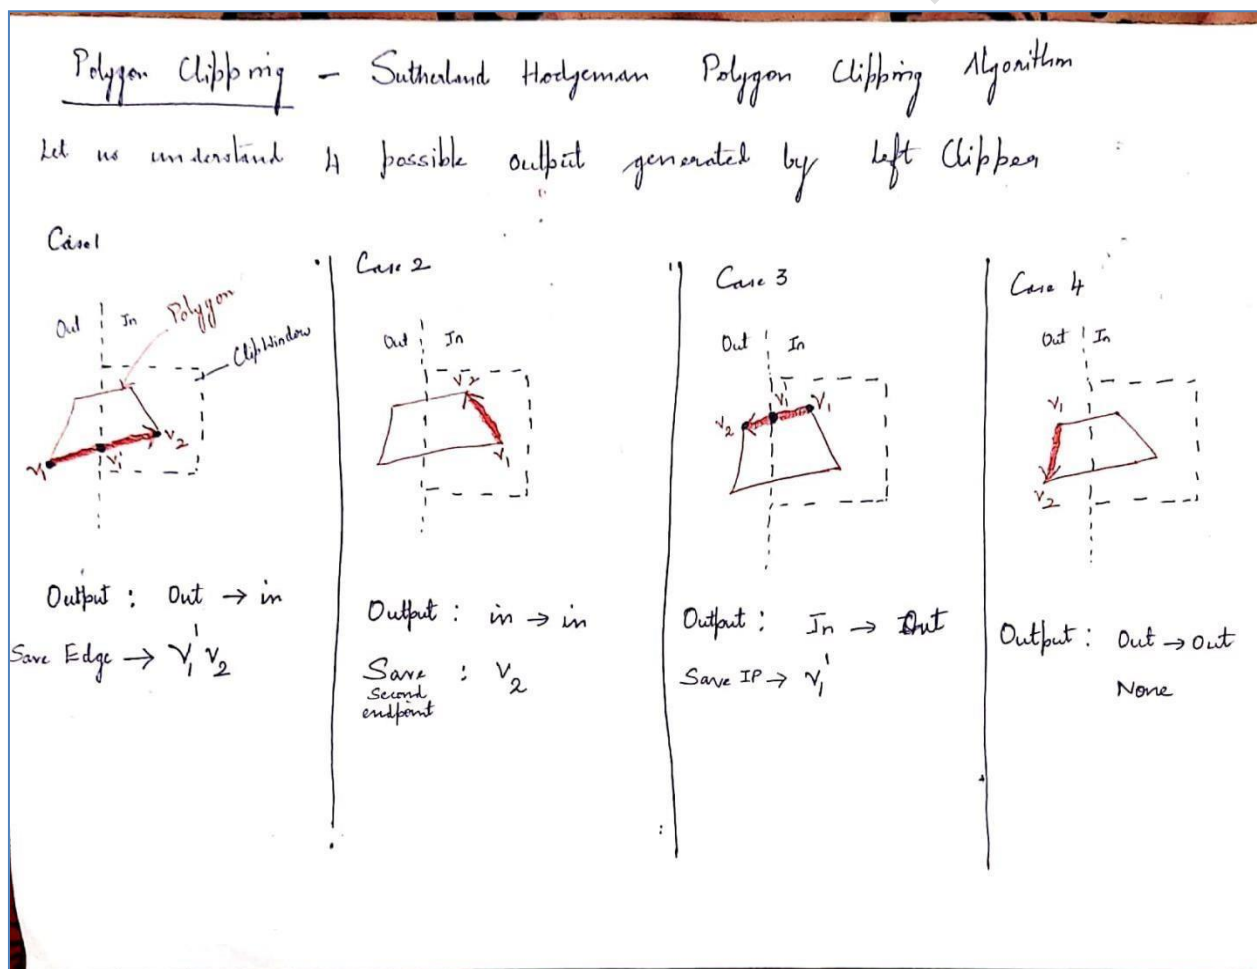 Polygon Clipping - Sutherland Hodgeman Polygon Clipping Algorithm
Let us understand 4 possible output generated by Left Clipper
Case 1
Out In Polygon
Clip Window
V1 V1' V2
Output : Out → in
Save Edge → V1' V2
Case 2
Out In
V2
V1
Output : in → in
Save : V2
Second
endpoint
Case 3
Out In
V2 V1' V1
Output : In → Out
Save IP → V1'
Case 4
Out In
V1
V2
Output : Out → out
None